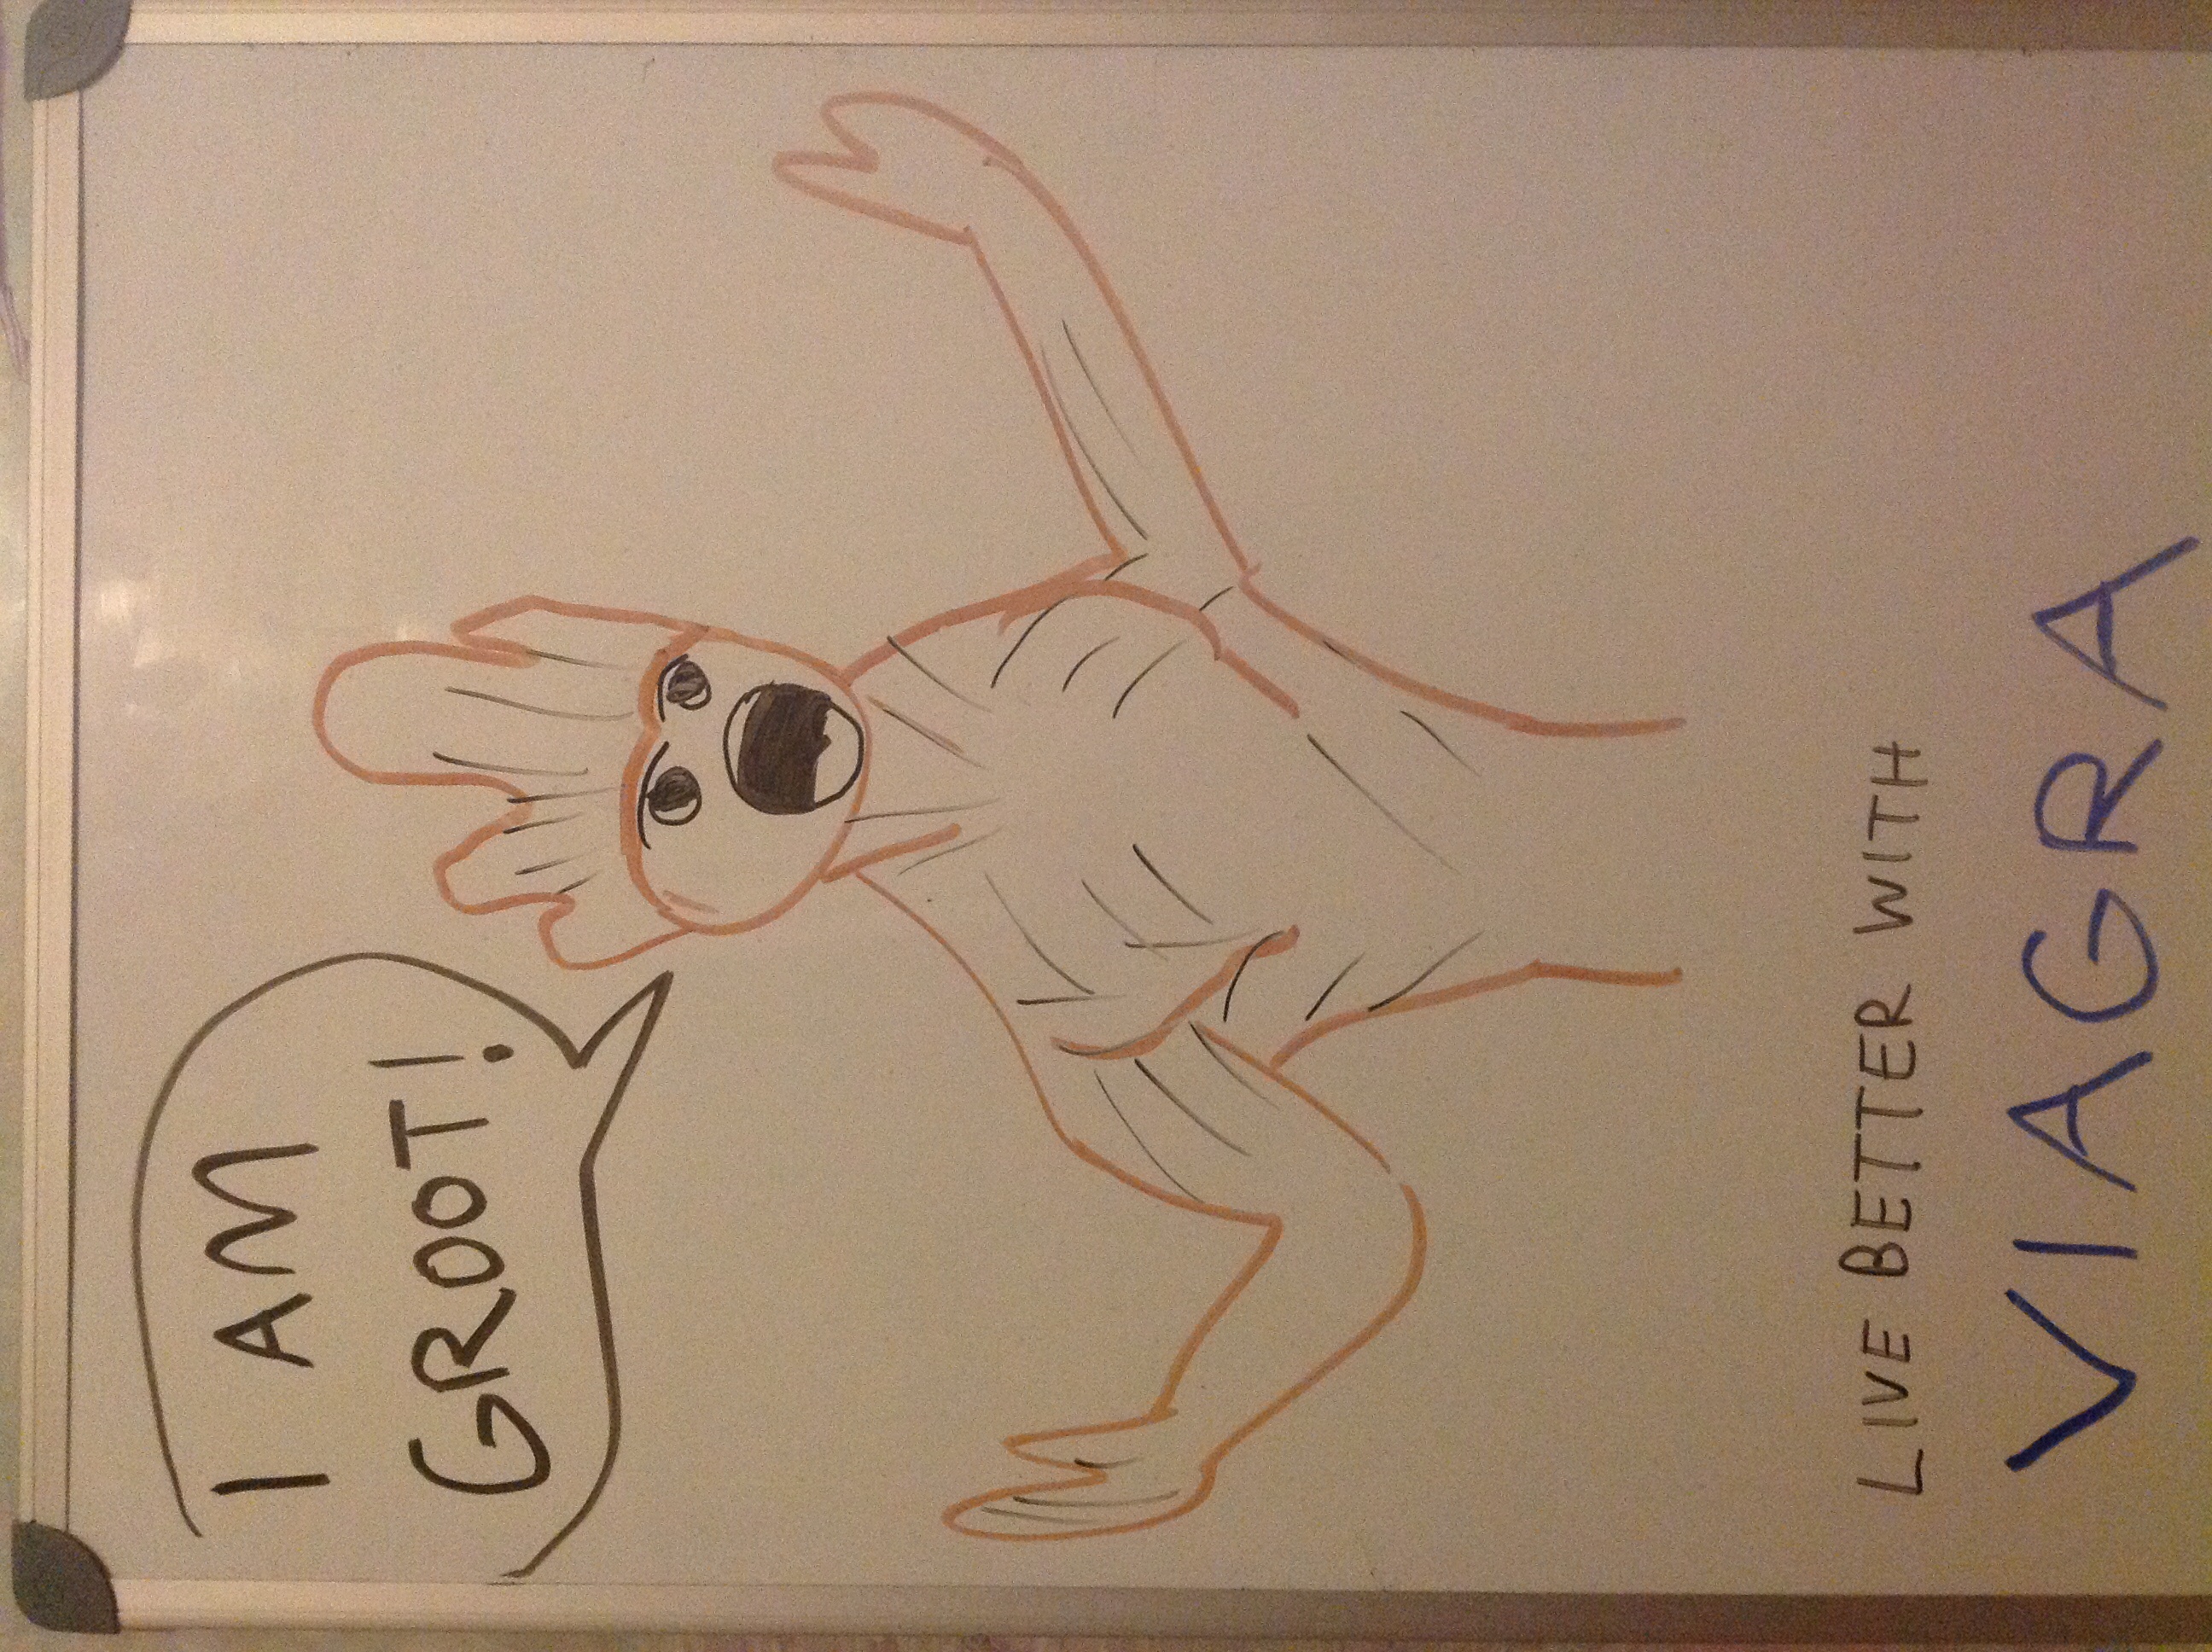 I AM
GROOT!
LIVE BETTER WITH
VIAGRA